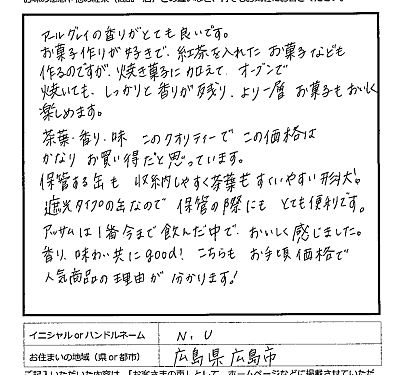 アールグレイの香りがとても良いです。
お菓子作りが好きで、紅茶を入れたお菓子なども
作るのですが、焼き菓子に加えて、オーブンで
焼いても、しっかりと香りが残り、より一層 お菓子もおいしく
楽しめます。
茶葉・香り・味 このクオリティーで この価格は
かなり お買い得だと思っています。
保管する缶も 収納しやすく茶葉もすくいやすい形状!
遮光タイプの缶なので 保管の際にも とても便利です。
アッサムは1番今まで飲んだ中で、おいしく感じました。
香り、味わい共にgood! こちらも お手頃価格で
人気商品の理由が 分かります!
イニシャル or ハンドルネーム N. U
お住まいの地域 (県 or 都市) 広島県広島市
ご記入いただいた内容は、「お客さまの声」として、ホームページなどに掲載させていただ